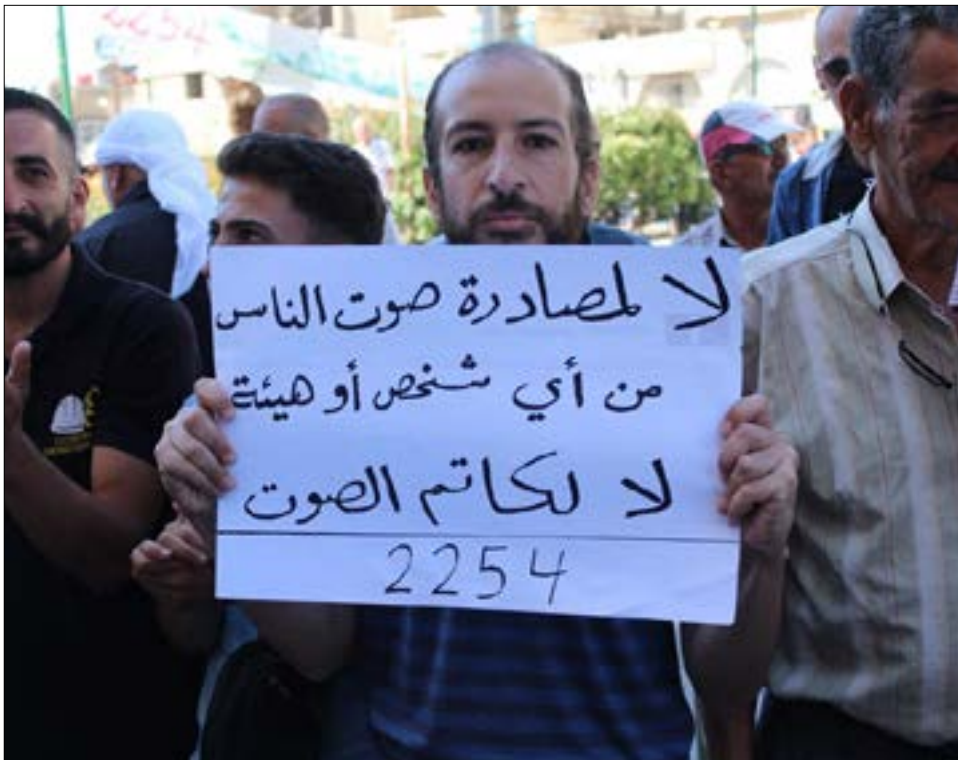 2254
لا لمصادرة صوت الناس
من أي شخص أو هيئة
لا لكاتم الصوت
2254